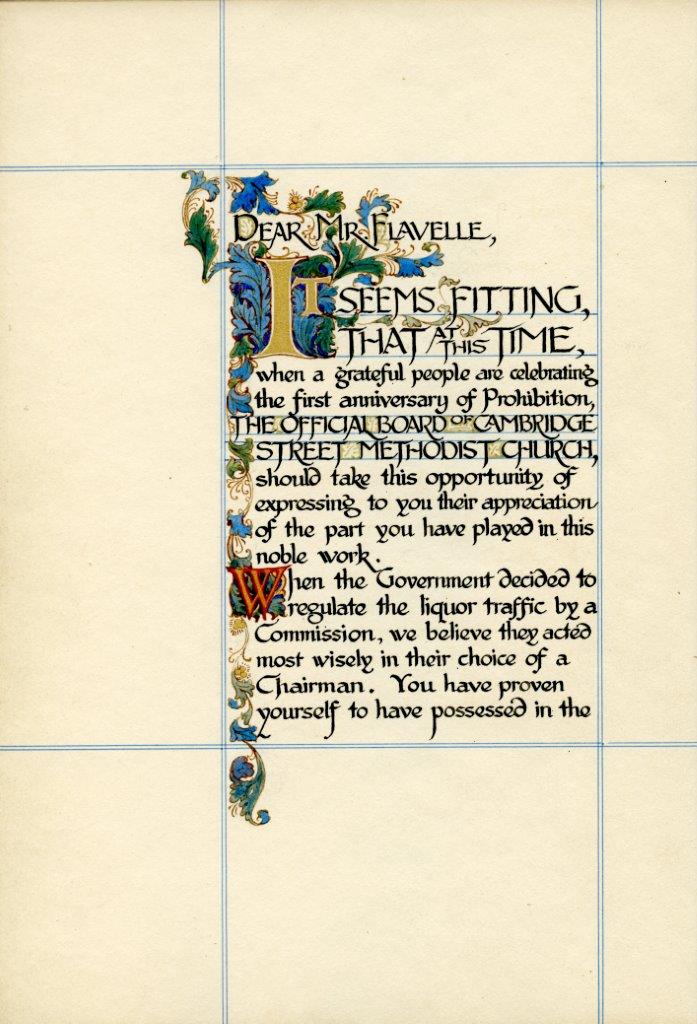 DEAR MR. FLAVELLE,
IT SEEMS FITTING,
THAT AT THIS TIME,
when a grateful people are celebrating
the first anniversary of Prohibition,
THE OFFICIAL BOARD OF CAMBRIDGE
STREET METHODIST CHURCH,
should take this opportunity of
expressing to you their appreciation
of the part you have played in this
noble work.
When the Government decided to
regulate the liquor traffic by a
Commission, we believe they acted
most wisely in their choice of a
Chairman. You have proven
yourself to have possessed in the